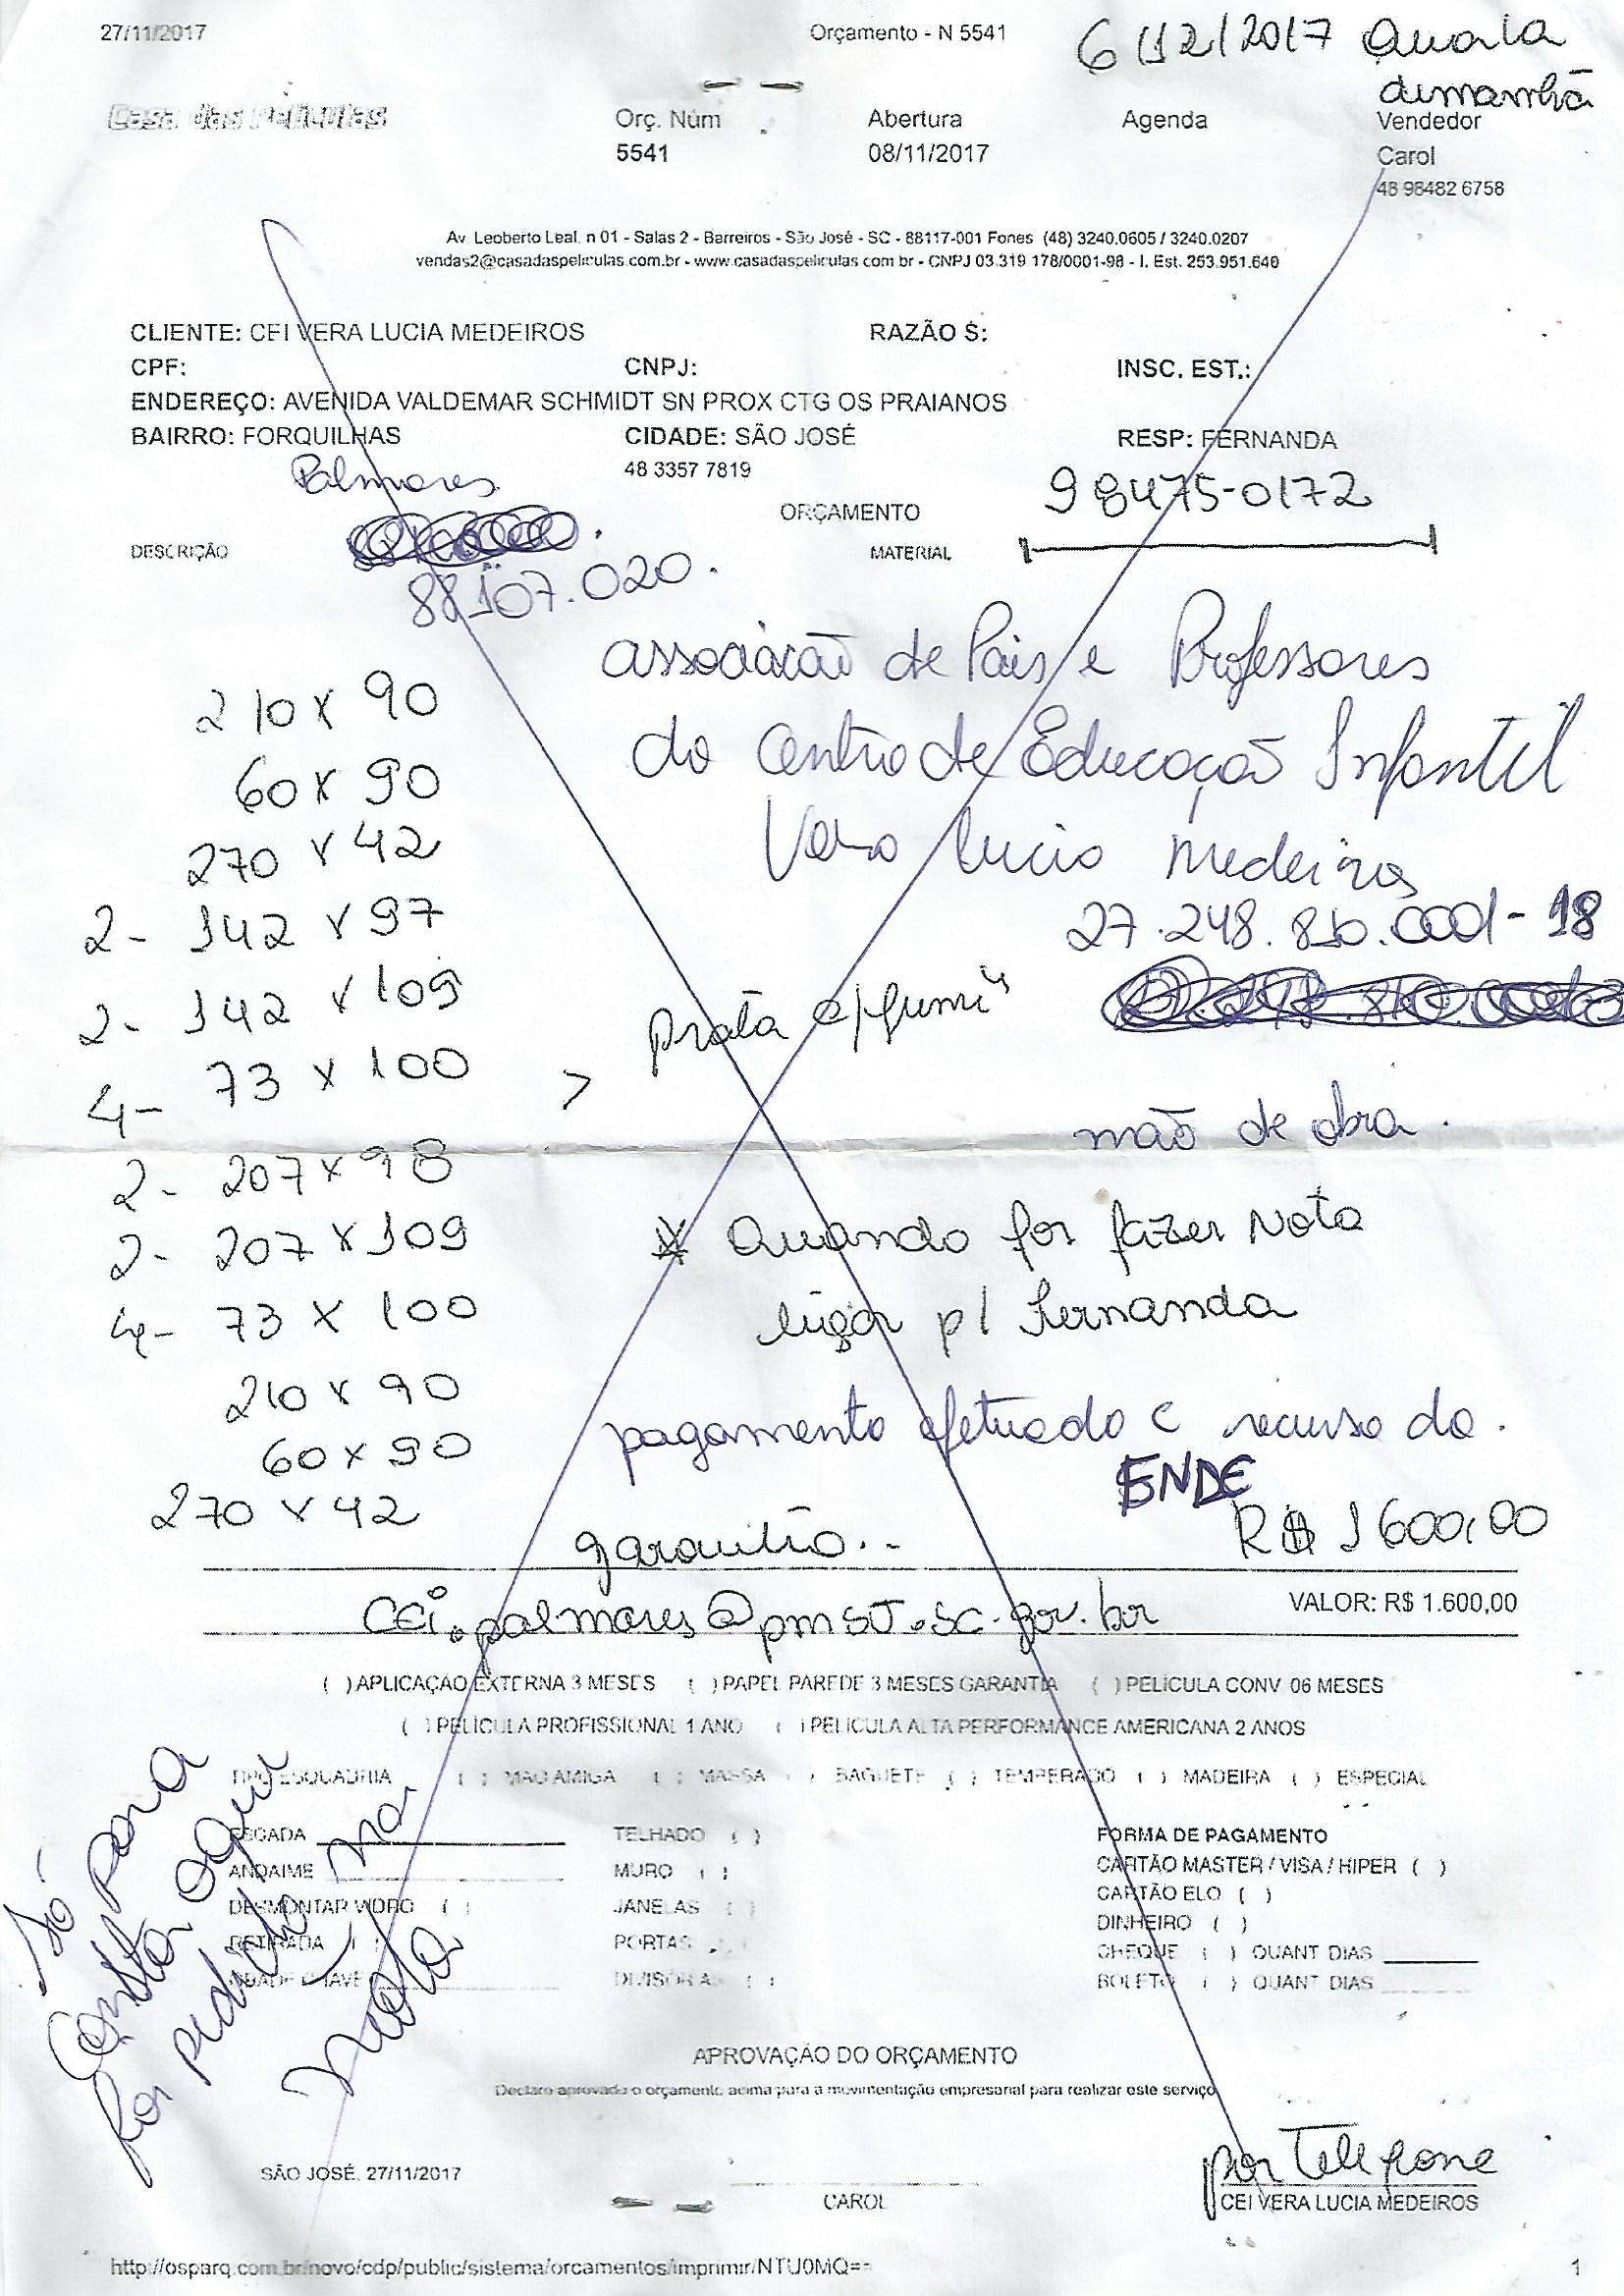 27/11/2017 Orçamento - N 5541 6/12/2017 Quarta
de manhã
Casa das Películas Orç. Núm Abertura Agenda Vendedor
5541 08/11/2017 Carol
48 98482 6758
Av. Leoberto Leal, n 01 - Salas 2 - Barreiros - São José - SC - 88117-001 Fones (48) 3240.0605 / 3240.0207
vendas2@casadaspeliculas.com.br - www.casadaspeliculas com br - CNPJ 03.319 178/0001-98 - I. Est. 253.951.640
CLIENTE: CEI VERA LUCIA MEDEIROS RAZÃO S:
CPF: CNPJ: INSC. EST.:
ENDEREÇO: AVENIDA VALDEMAR SCHMIDT SN PROX CTG OS PRAIANOS
BAIRRO: FORQUILHAS CIDADE: SÃO JOSÉ RESP: FERNANDA
Palmares 48 3357 7819 98475-0172
ORÇAMENTO
DESCRIÇÃO MATERIAL
88107.020.
associação de Pais e Professores
210 x 90
do Centro de Educação Infantil
60 x 90
270 x 42 Vera Lucia Medeiros
2- 142 x 97 27.248.810.0001-18
2- 142 x 109 prata c/ fumê
4- 73 x 100 >
mão de obra.
2- 207 x 98
2- 207 x 109 * Quando for fazer Nota
4- 73 x 100 ligar p/ Fernanda
210 x 90
60 x 90 pagamento efetuado c recurso do.
FNDE
270 x 42 garantia.. R$ 1600,00
CEi.palmares@pmsj.sc.gov.br VALOR: R$ 1.600,00
( ) APLICAÇÃO EXTERNA 3 MESES ( ) PAPEL PAREDE 3 MESES GARANTIA ( ) PELÍCULA CONV 06 MESES
( ) PELÍCULA PROFISSIONAL 1 ANO ( ) PELÍCULA ALTA PERFORMANCE AMERICANA 2 ANOS
TIPO ESQUADRIA ( ) MAO AMIGA ( ) MASSA ( ) BAGUETE ( ) TEMPERADO ( ) MADEIRA ( ) ESPECIAL
ESCADA TELHADO ( ) FORMA DE PAGAMENTO
ANDAIME MURO ( ) CARTÃO MASTER / VISA / HIPER ( )
DESMONTAR VIDRO ( ) JANELAS ( ) CARTÃO ELO ( )
RETIRADA ( ) PORTAS DINHEIRO ( )
CHAVE DIVISÓRIAS ( ) CHEQUE ( ) QUANT DIAS
BOLETO ( ) QUANT DIAS
Só para
constar aqui
foi pedido na
nota
APROVAÇÃO DO ORÇAMENTO
Declaro aprovado o orçamento acima para a movimentação empresarial para realizar este serviço
SÃO JOSÉ, 27/11/2017 por Telefone
CAROL CEI VERA LUCIA MEDEIROS
http://osparq.com.br/novo/cdp/public/sistema/orcamentos/imprimir/NTU0MQ== 1